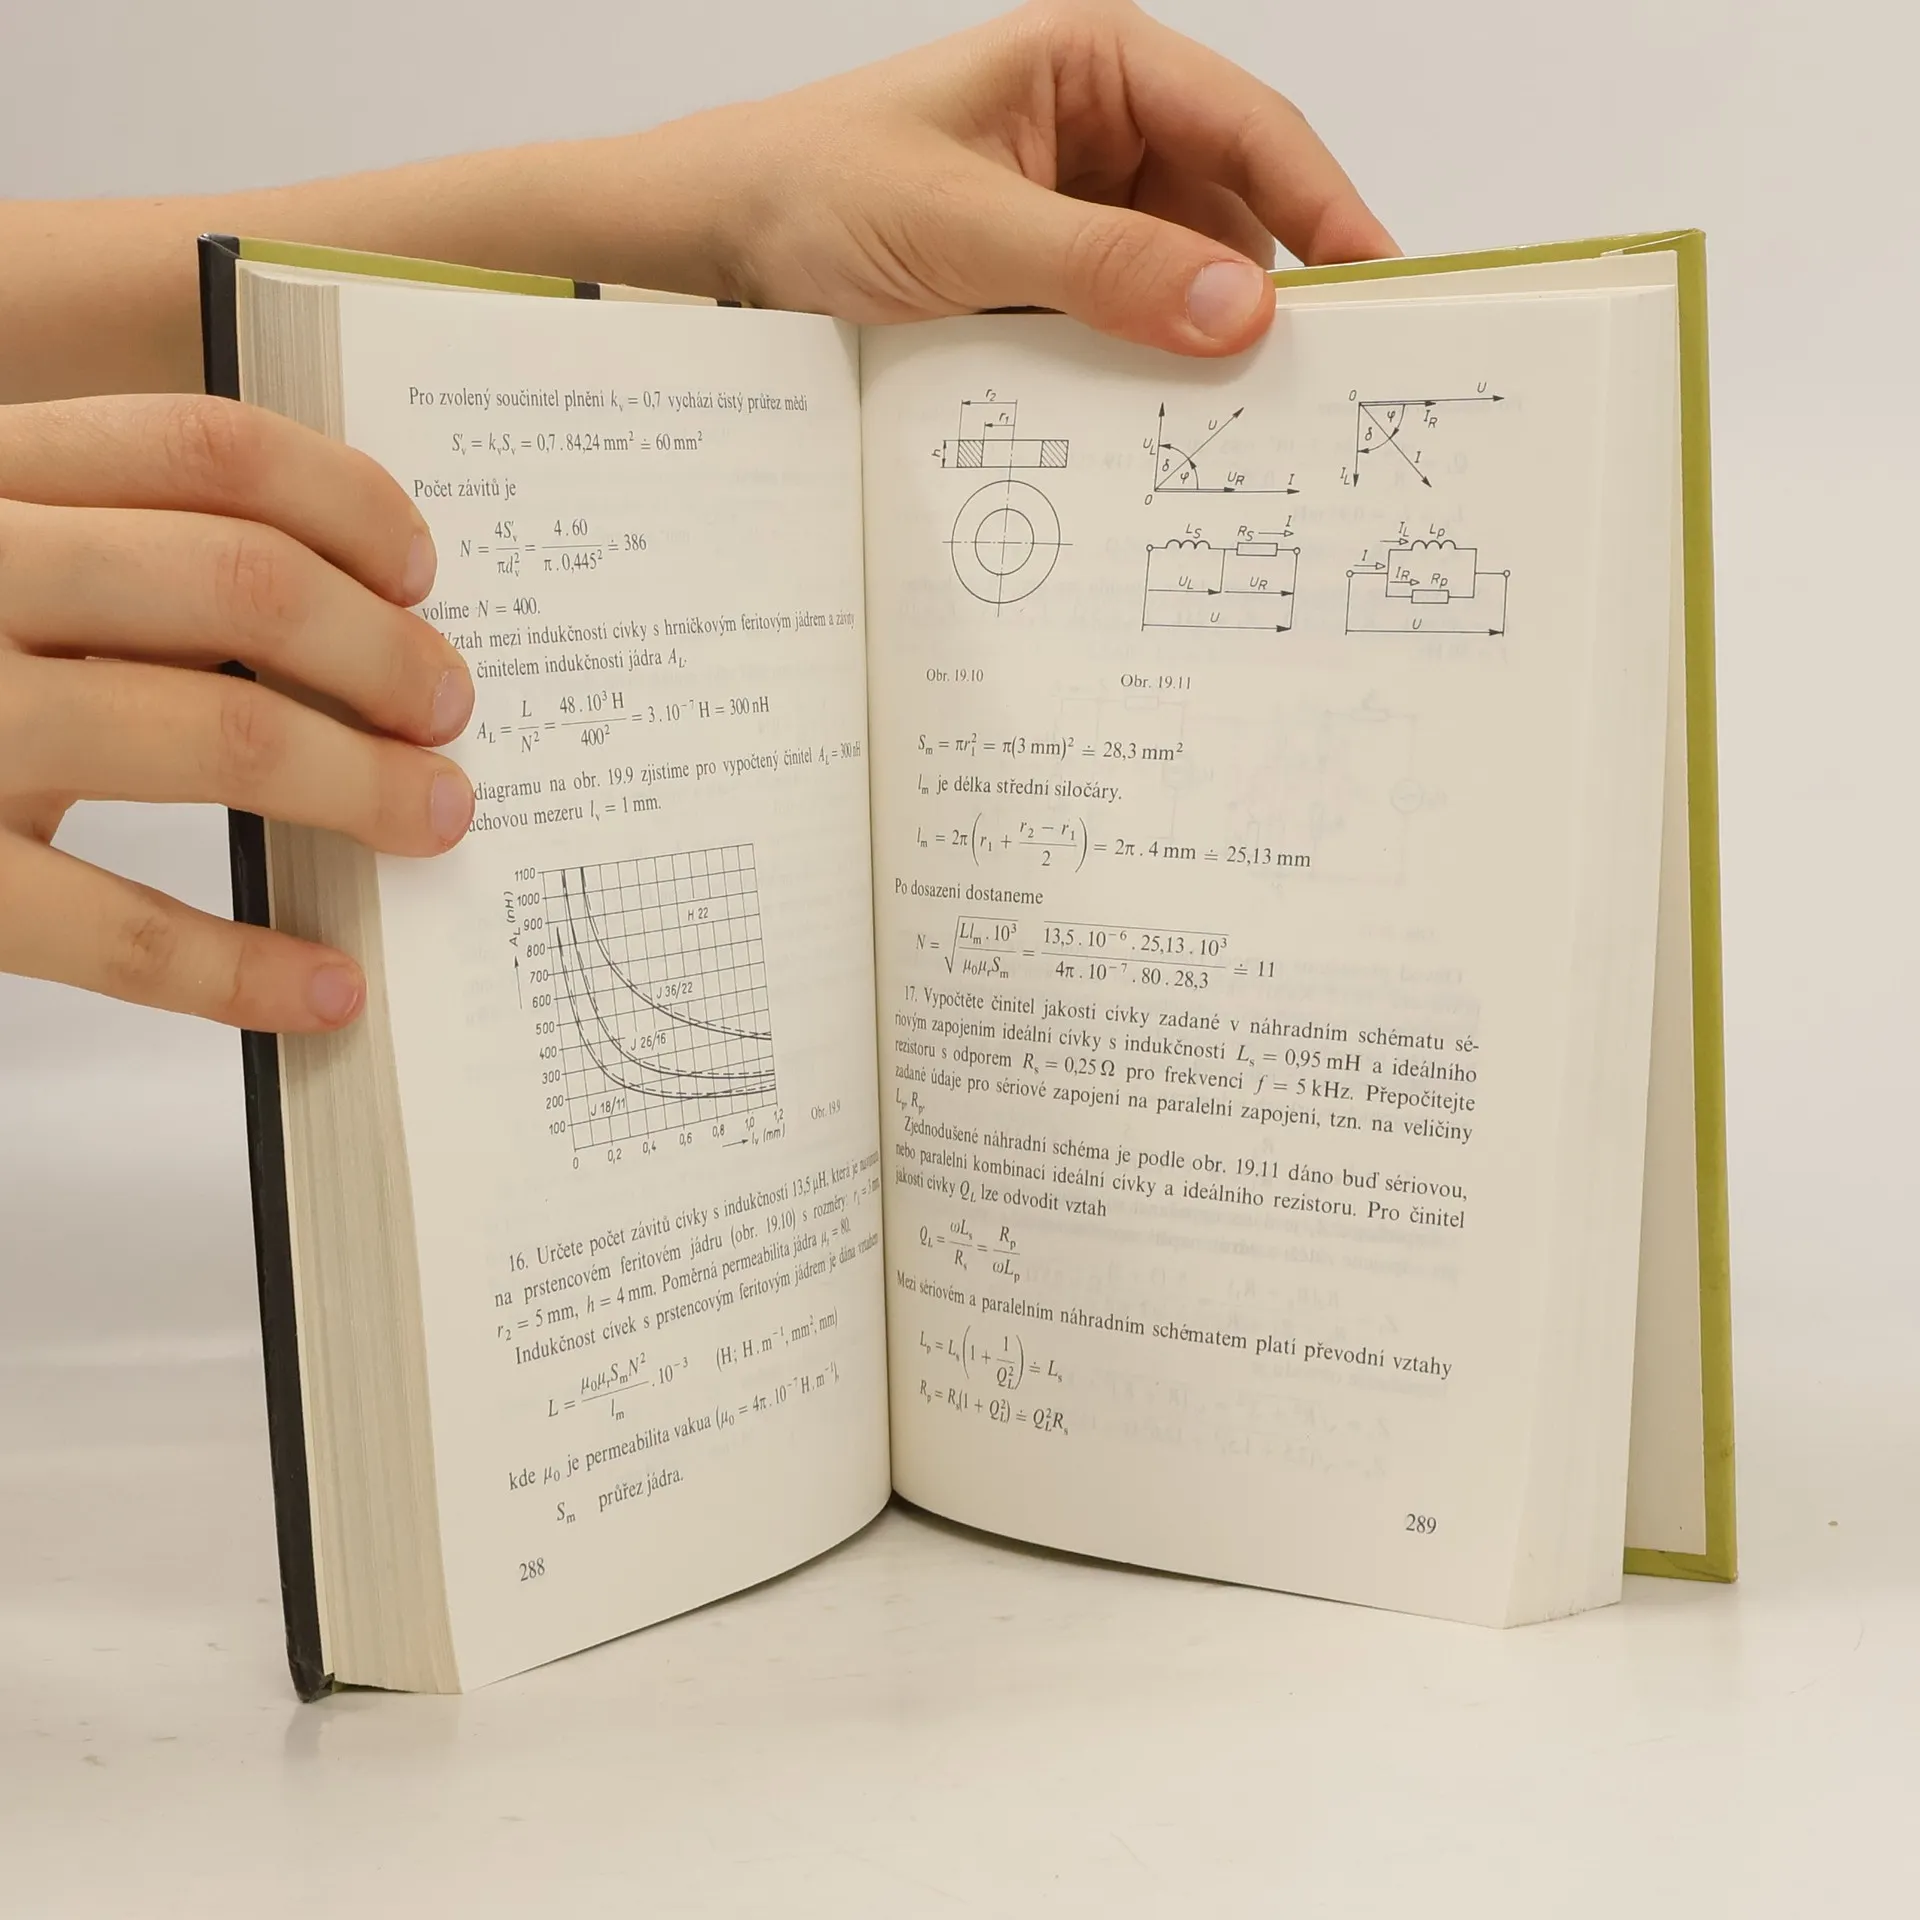 Pro zvolený součinitel plnění kᵥ = 0,7 vychází čistý průřez mědi
S'ᵥ = kᵥSᵥ = 0,7 . 84,24 mm² ≐ 60 mm²
Počet závitů je
N = 4S'ᵥ / πdᵥ² = 4 . 60 / π . 0,445² ≐ 386
volíme N = 400.
Vztah mezi indukčností cívky s hrníčkovým feritovým jádrem a závity
činitelem indukčnosti jádra A_L.
A_L = L / N² = 48 . 10³ H / 400² = 3 . 10⁻⁷ H = 300 nH
diagramu na obr. 19.9 zjistíme pro vypočtený činitel A_L = 300 nH
mezeru lᵥ = 1 mm.
A_L (nH)
1100
1000
900
800
700
600
500
400
300
200
100
H 22
J 36/22
J 26/16
J 18/11
0 0,2 0,4 0,6 0,8 1,0 1,2
lᵥ (mm)
Obr. 19.9
16. Určete počet závitů cívky s indukčností 13,5 μH, která je
na prstencovém feritovém jádru (obr. 19.10) s rozměry: r₁ = 3 mm,
r₂ = 5 mm, h = 4 mm. Poměrná permeabilita jádra μᵣ = 80.
Indukčnost cívek s prstencovým feritovým jádrem je dána vztahem
L = μ₀μᵣSₘN² / lₘ . 10⁻³ (H; H . m⁻¹, mm², mm)
kde μ₀ je permeabilita vakua (μ₀ = 4π . 10⁻⁷ H . m⁻¹),
Sₘ průřez jádra.
288
r₂
r₁
h
U_L U δ φ U_R I 0
0 U φ I_R δ I I_L
L_S R_S I
U_L U_R
U
I_L L_p
I I_R R_p
U
Obr. 19.10
Obr. 19.11
Sₘ = πr₁² = π(3 mm)² ≐ 28,3 mm²
lₘ je délka střední siločáry.
lₘ = 2π (r₁ + (r₂ − r₁) / 2) = 2π . 4 mm ≐ 25,13 mm
Po dosazení dostaneme
N = √(Llₘ . 10³ / μ₀μᵣSₘ) = 13,5 . 10⁻⁶ . 25,13 . 10³ / 4π . 10⁻⁷ . 80 . 28,3 ≐ 11
17. Vypočtěte činitel jakosti cívky zadané v náhradním schématu sé-
riovým zapojením ideální cívky s indukčností Lₛ = 0,95 mH a ideálního
rezistoru s odporem Rₛ = 0,25 Ω pro frekvenci f = 5 kHz. Přepočítejte
zadané údaje pro sériové zapojení na paralelní zapojení, tzn. na veličiny
Lₚ, Rₚ.
Zjednodušené náhradní schéma je podle obr. 19.11 dáno buď sériovou,
nebo paralelní kombinací ideální cívky a ideálního rezistoru. Pro činitel
jakosti cívky Q_L lze odvodit vztah
Q_L = ωLₛ / Rₛ = Rₚ / ωLₚ
Mezi sériovém a paralelním náhradním schématem platí převodní vztahy
Lₚ = Lₛ(1 + 1 / Q_L²) ≐ Lₛ
Rₚ = Rₛ(1 + Q_L²) ≐ Q_L²Rₛ
289